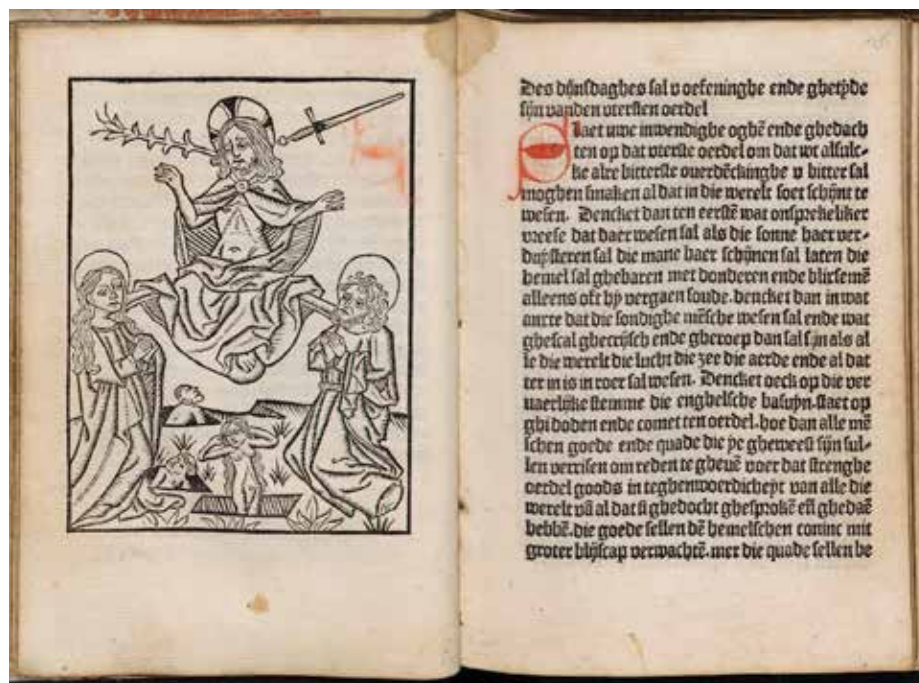 Des dijnsdaghes sal v oefeninghe ende ghetijde
sijn vanden vtersten oerdel
Slaet uwe inwendighe oghē ende ghedach
ten op dat vterste oerdel om dat wt alsulc⸗
ke alre bitterste ouerdēckinghe v bitter sal
moghen smaken al dat in die werelt soet schijnt te
wesen. Dencket dan ten eerstē wat onsprekeliker
vreese dat daer wesen sal als die sonne haer ver⸗
duysteren sal die mane haer schijnen sal laten die
hemel sal ghebaren met donderen ende blixemē
alleens oft hy vergaen soude. dencket dan in wat
anxte dat die sondighe mēsche wesen sal ende wat
ghescal ghecrijsch ende gheroep dan sal sijn als al
le die werelt die lucht die zee die aerde ende al dat
ter in is in roer sal wesen. Dencket oeck op die ver
uaerlijke stemme die enghelsche basuyn. staet op
ghi doden ende comet ten oerdel. hoe dan alle mē
schen goede ende quade die ye gheweest sijn sul⸗
len verrisen om reden te gheuē voer dat strenghe
oerdel goods in teghenwoerdicheyt van alle die
werelt vā al dat si ghedocht ghesprokē eñ ghedaē
hebbē. die goede sellen dē hemelschen coninc mit
groter blijscap verwachtē. mer die quade sellen be